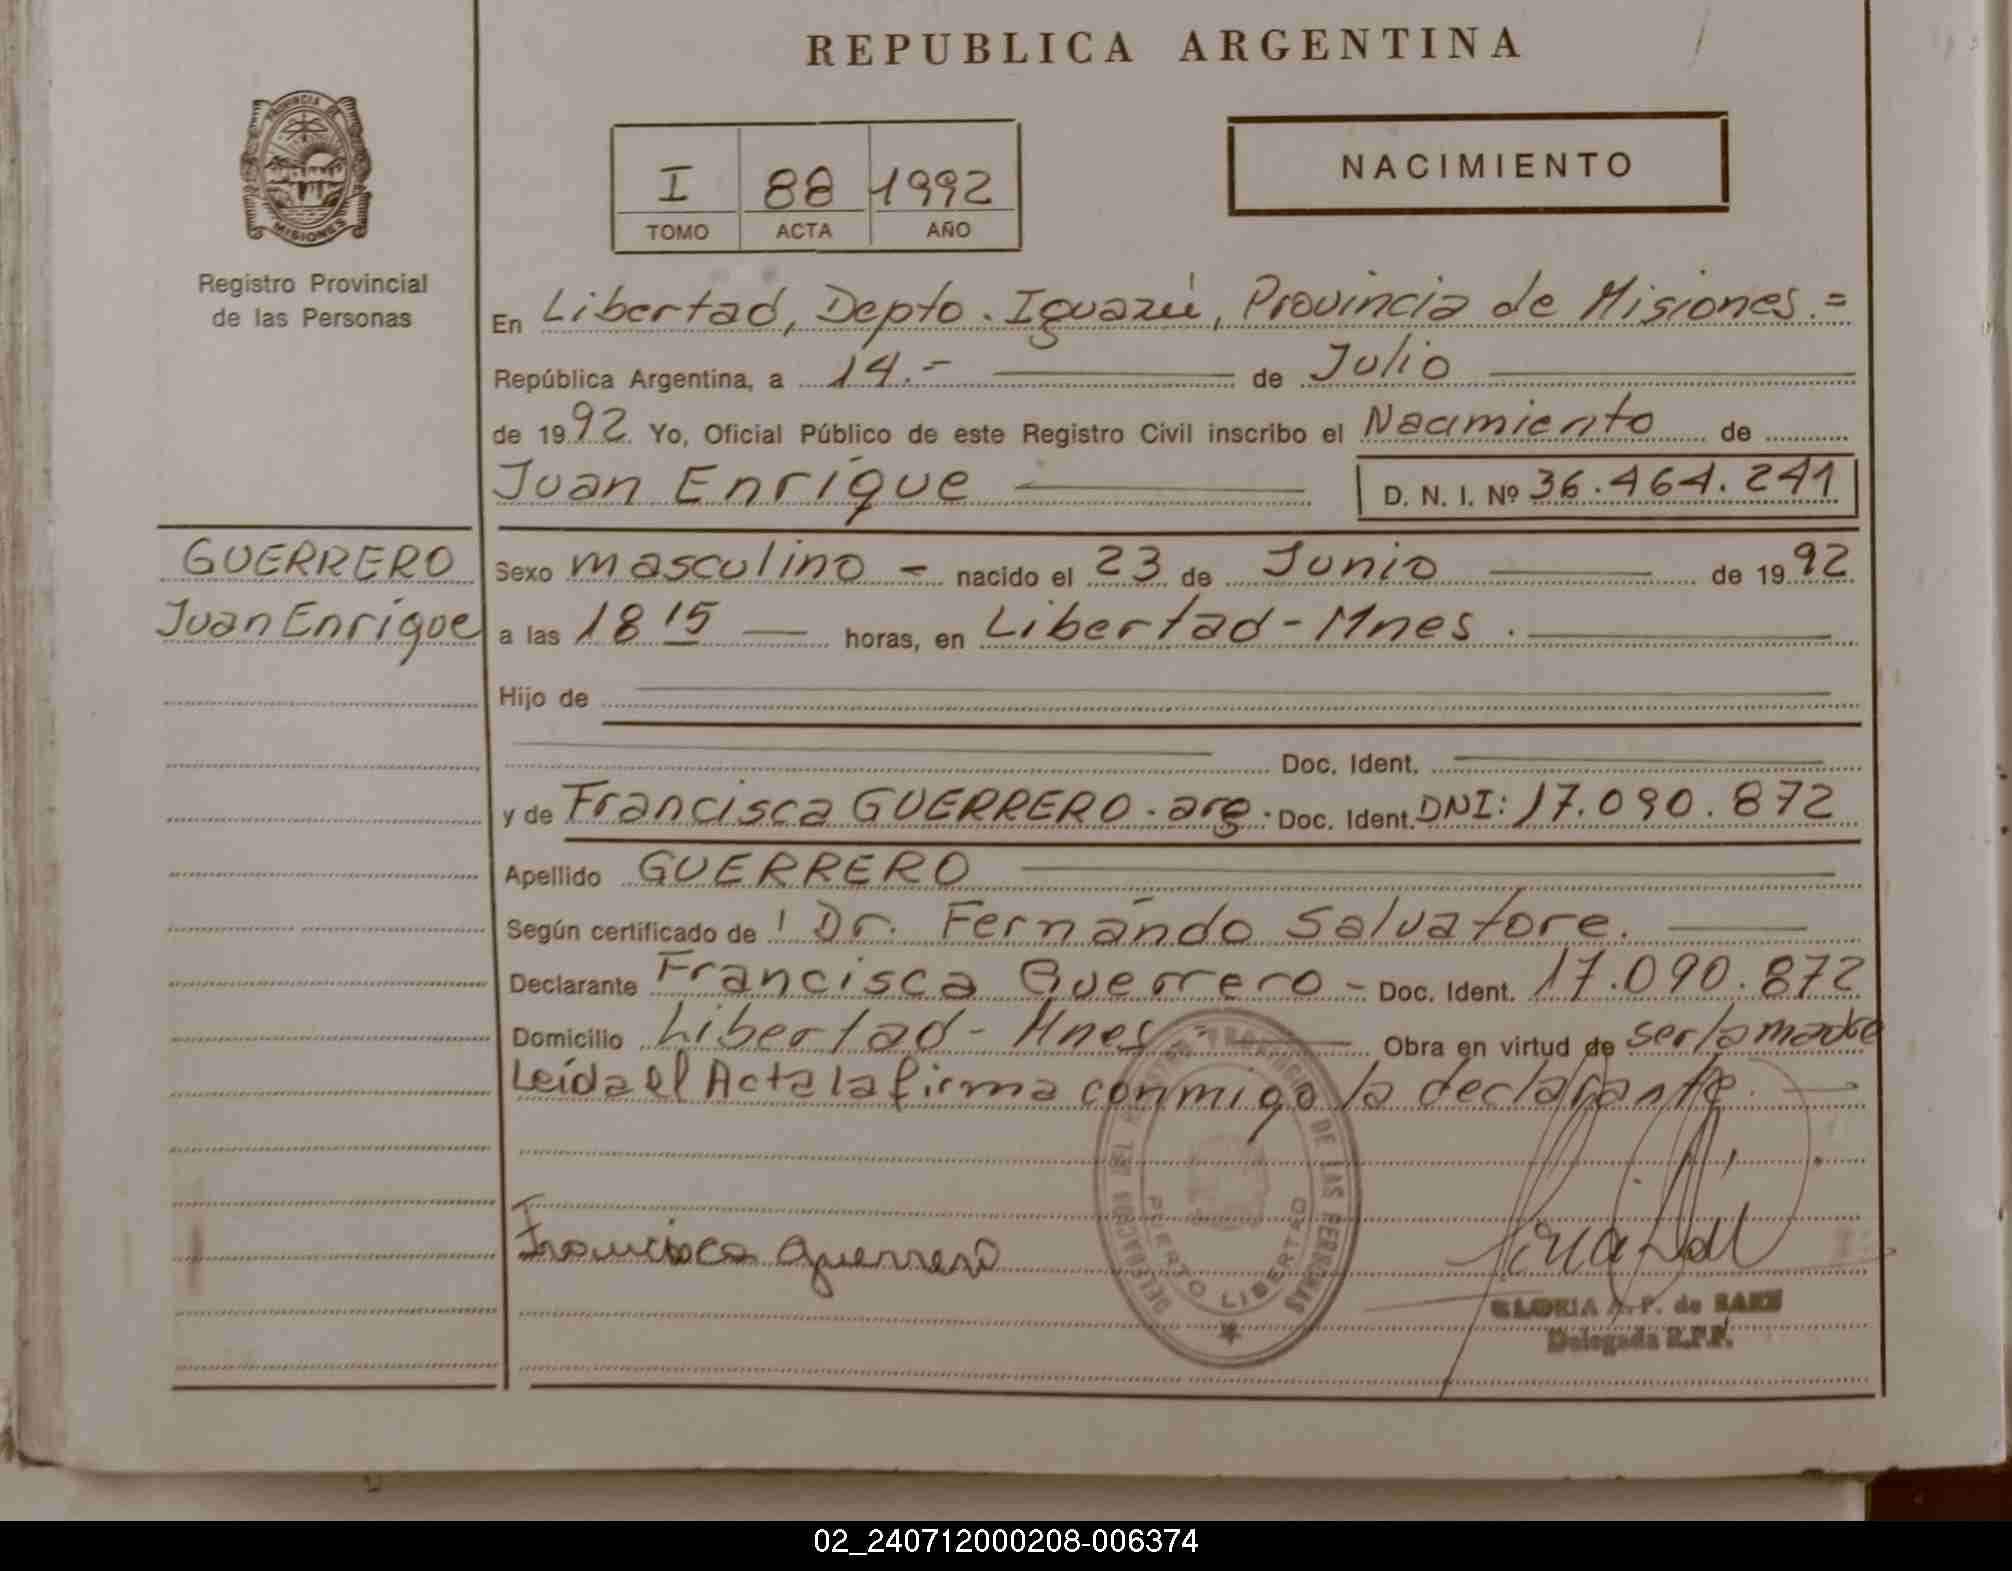 REPUBLICA ARGENTINA
PROVINCIA DE MISIONES
Registro Provincial
de las Personas
I 88 1992
TOMO ACTA AÑO
NACIMIENTO
En Libertad, Depto. Iguazú, Provincia de Misiones.=
República Argentina, a 14.- de Julio
de 1992. Yo, Oficial Público de este Registro Civil inscribo el Nacimiento de
Juan Enrique D. N. I. Nº 36.464.241
GUERRERO
Juan Enrique
Sexo masculino - nacido el 23 de Junio de 1992
a las 18 15 horas, en Libertad-Mnes.
Hijo de
Doc. Ident.
y de Francisca GUERRERO. arg. Doc. Ident. DNI: 17.090.872
Apellido GUERRERO
Según certificado de Dr. Fernándo Salvatore.
Declarante Francisca Guerrero - Doc. Ident. 17.090.872
Domicilio Libertad - Mnes Obra en virtud de ser la madre
Leída el Acta la firma conmigo la declarante.
DELEGACION DEL REGISTRO PROVINCIAL DE LAS PERSONAS
PUERTO LIBERTAD
Francisca Guerrero
GLORIA A. P. de SAEZ
Delegada R.P.P.
02_240712000208-006374